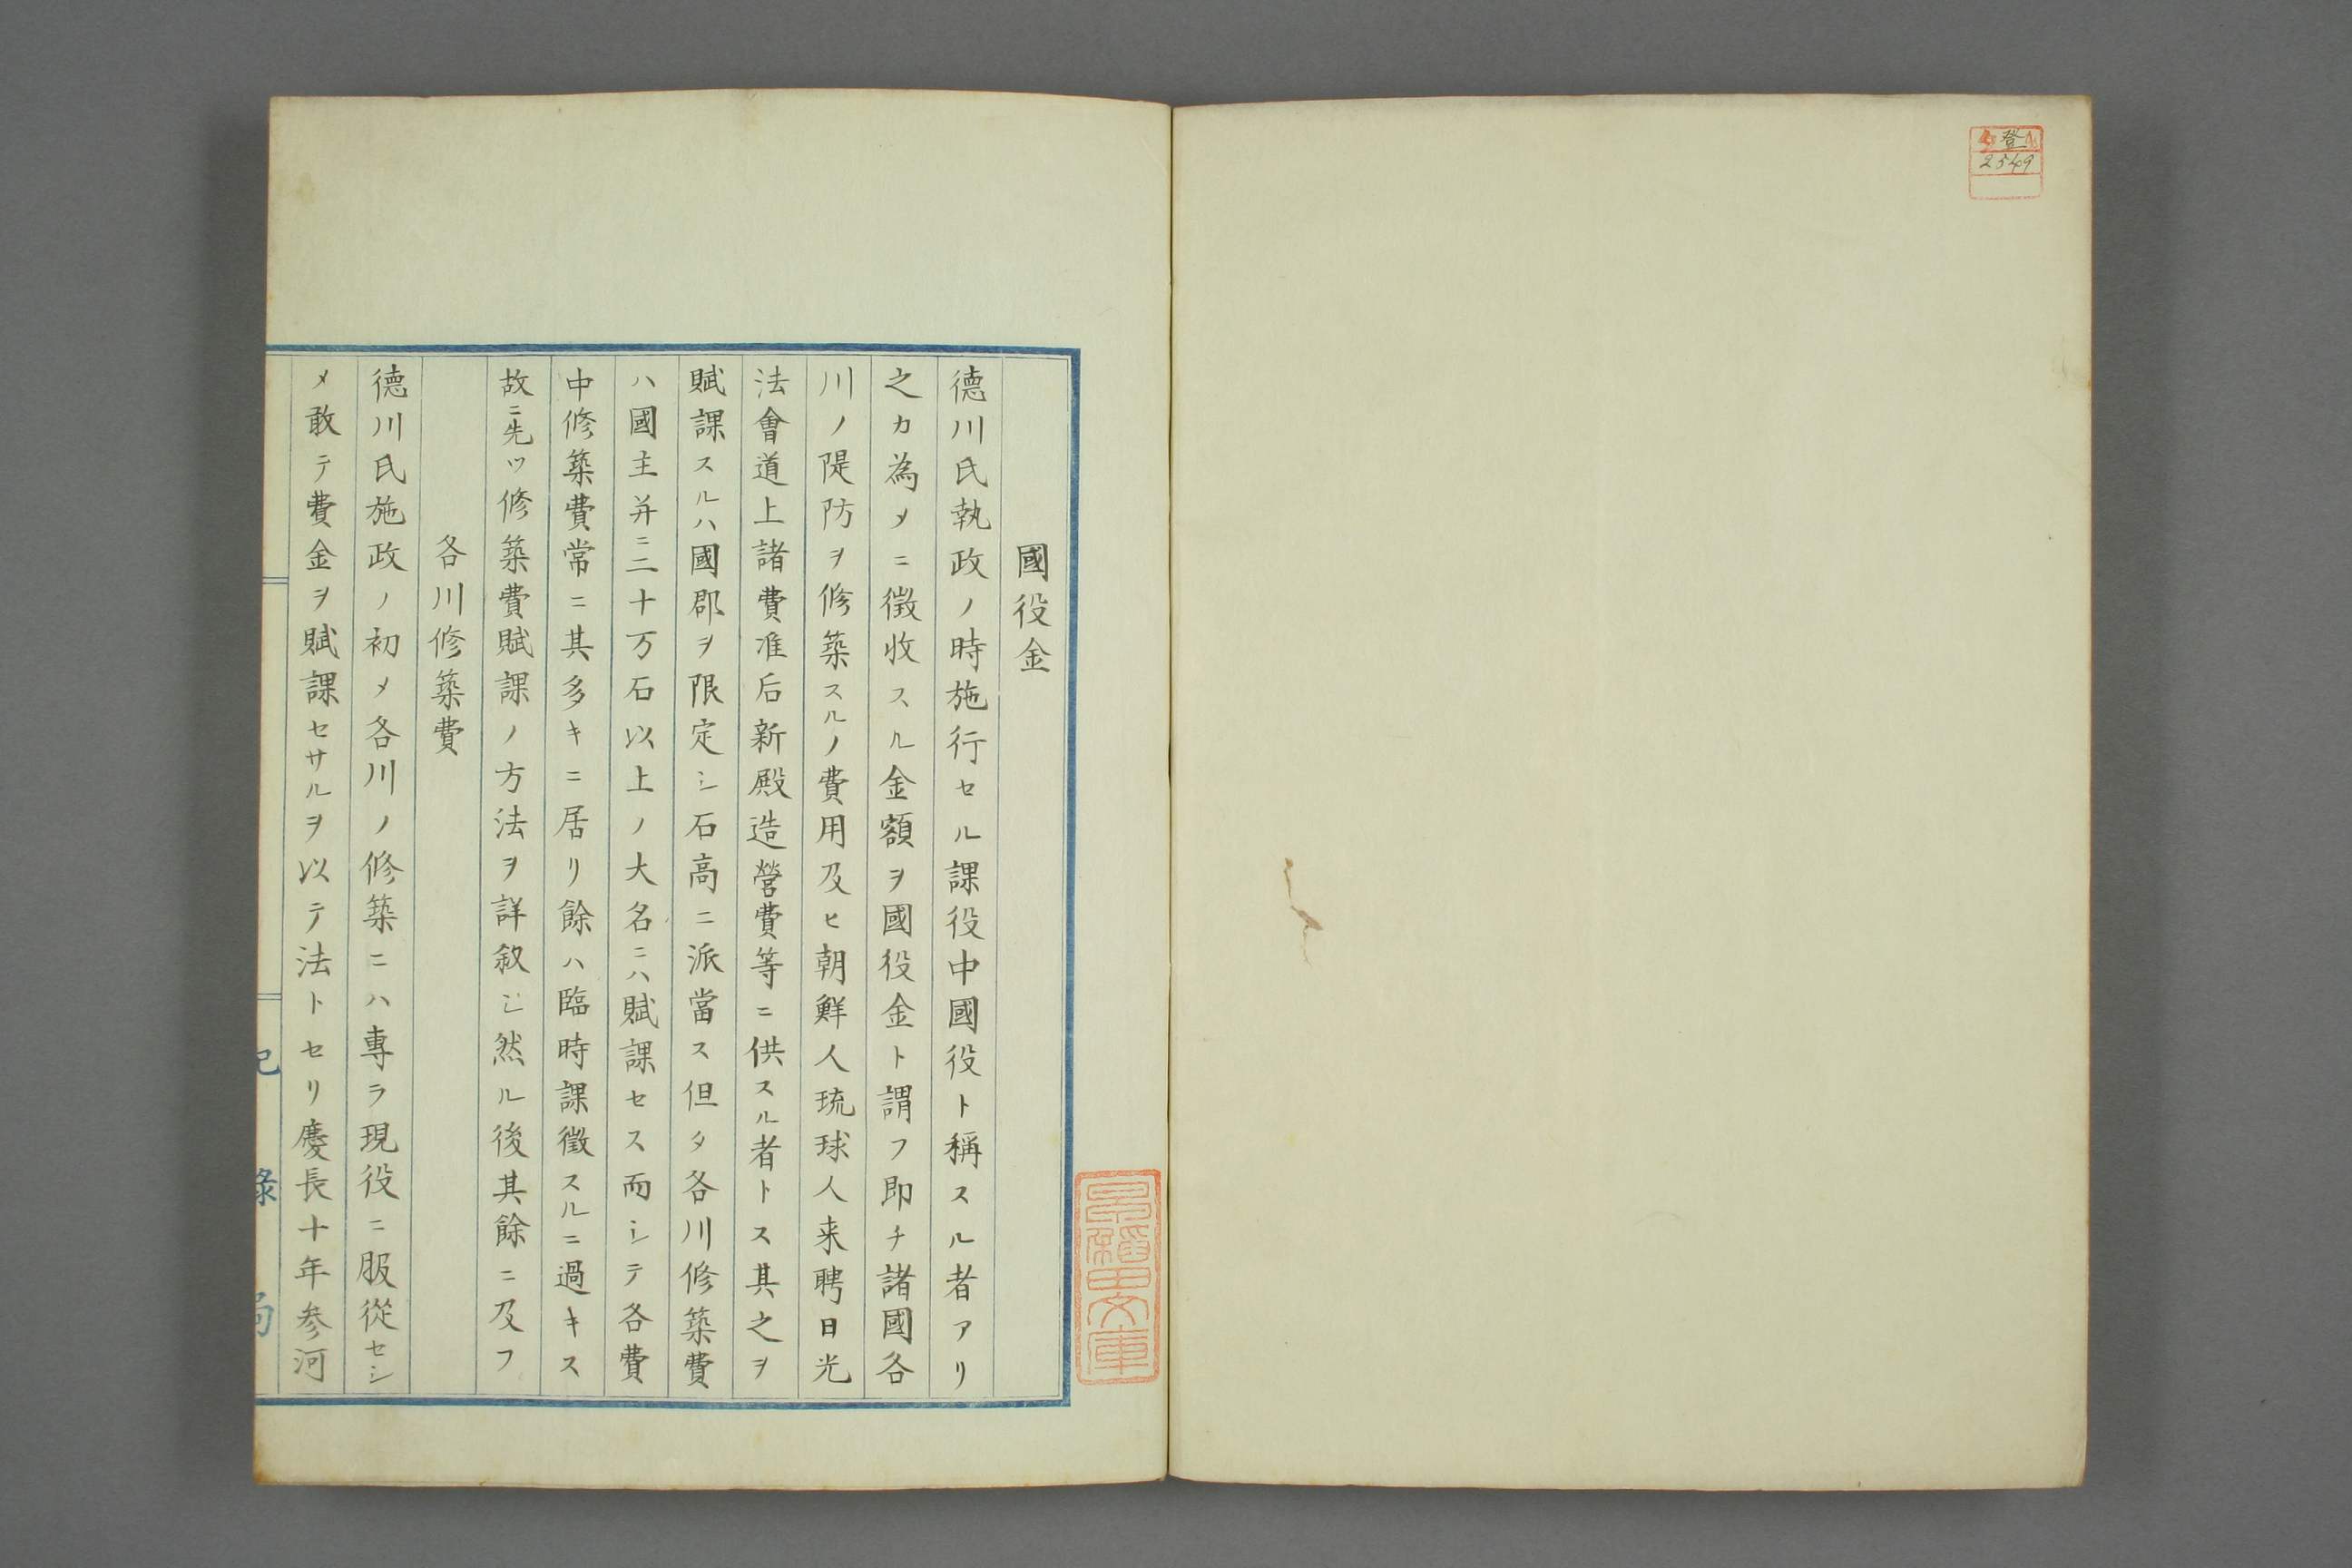 登
2549
國役金
德川氏執政ノ時施行セル課役中國役ト稱スル者アリ
之カ為メニ徴收スル金額ヲ國役金ト謂フ即チ諸國各
川ノ隄防ヲ修築スルノ費用及ヒ朝鮮人琉球人来聘日光
法會道上諸費准后新殿造營費等ニ供スル者トス其之ヲ
賦課スルハ國郡ヲ限定シ石高ニ派當ス但タ各川修築費
ハ國主并ニ二十万石以上ノ大名ニハ賦課セス而シテ各費
中修築費常ニ其多キニ居リ餘ハ臨時課徴スルニ過キス
故ニ先ツ修築費賦課ノ方法ヲ詳敘シ然ル後其餘ニ及フ
各川修築費
德川氏施政ノ初メ各川ノ修築ニハ專ラ現役ニ服從セシ
メ敢テ費金ヲ賦課セサルヲ以テ法トセリ慶長十年参河
記録局